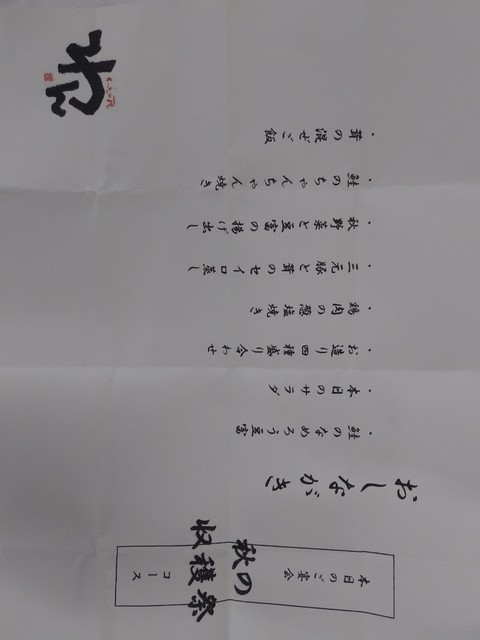 本日のご宴会
秋の
収穫祭
コース
おしながき
・鮭のなめろう豆富
・本日のサラダ
・お造り四種盛り合わせ
・鶏肉の葱塩焼き
・三元豚と茸のセイロ蒸し
・秋野菜と豆富の揚げ出し
・鮭のちゃんちゃん焼き
・茸の混ぜご飯
わん